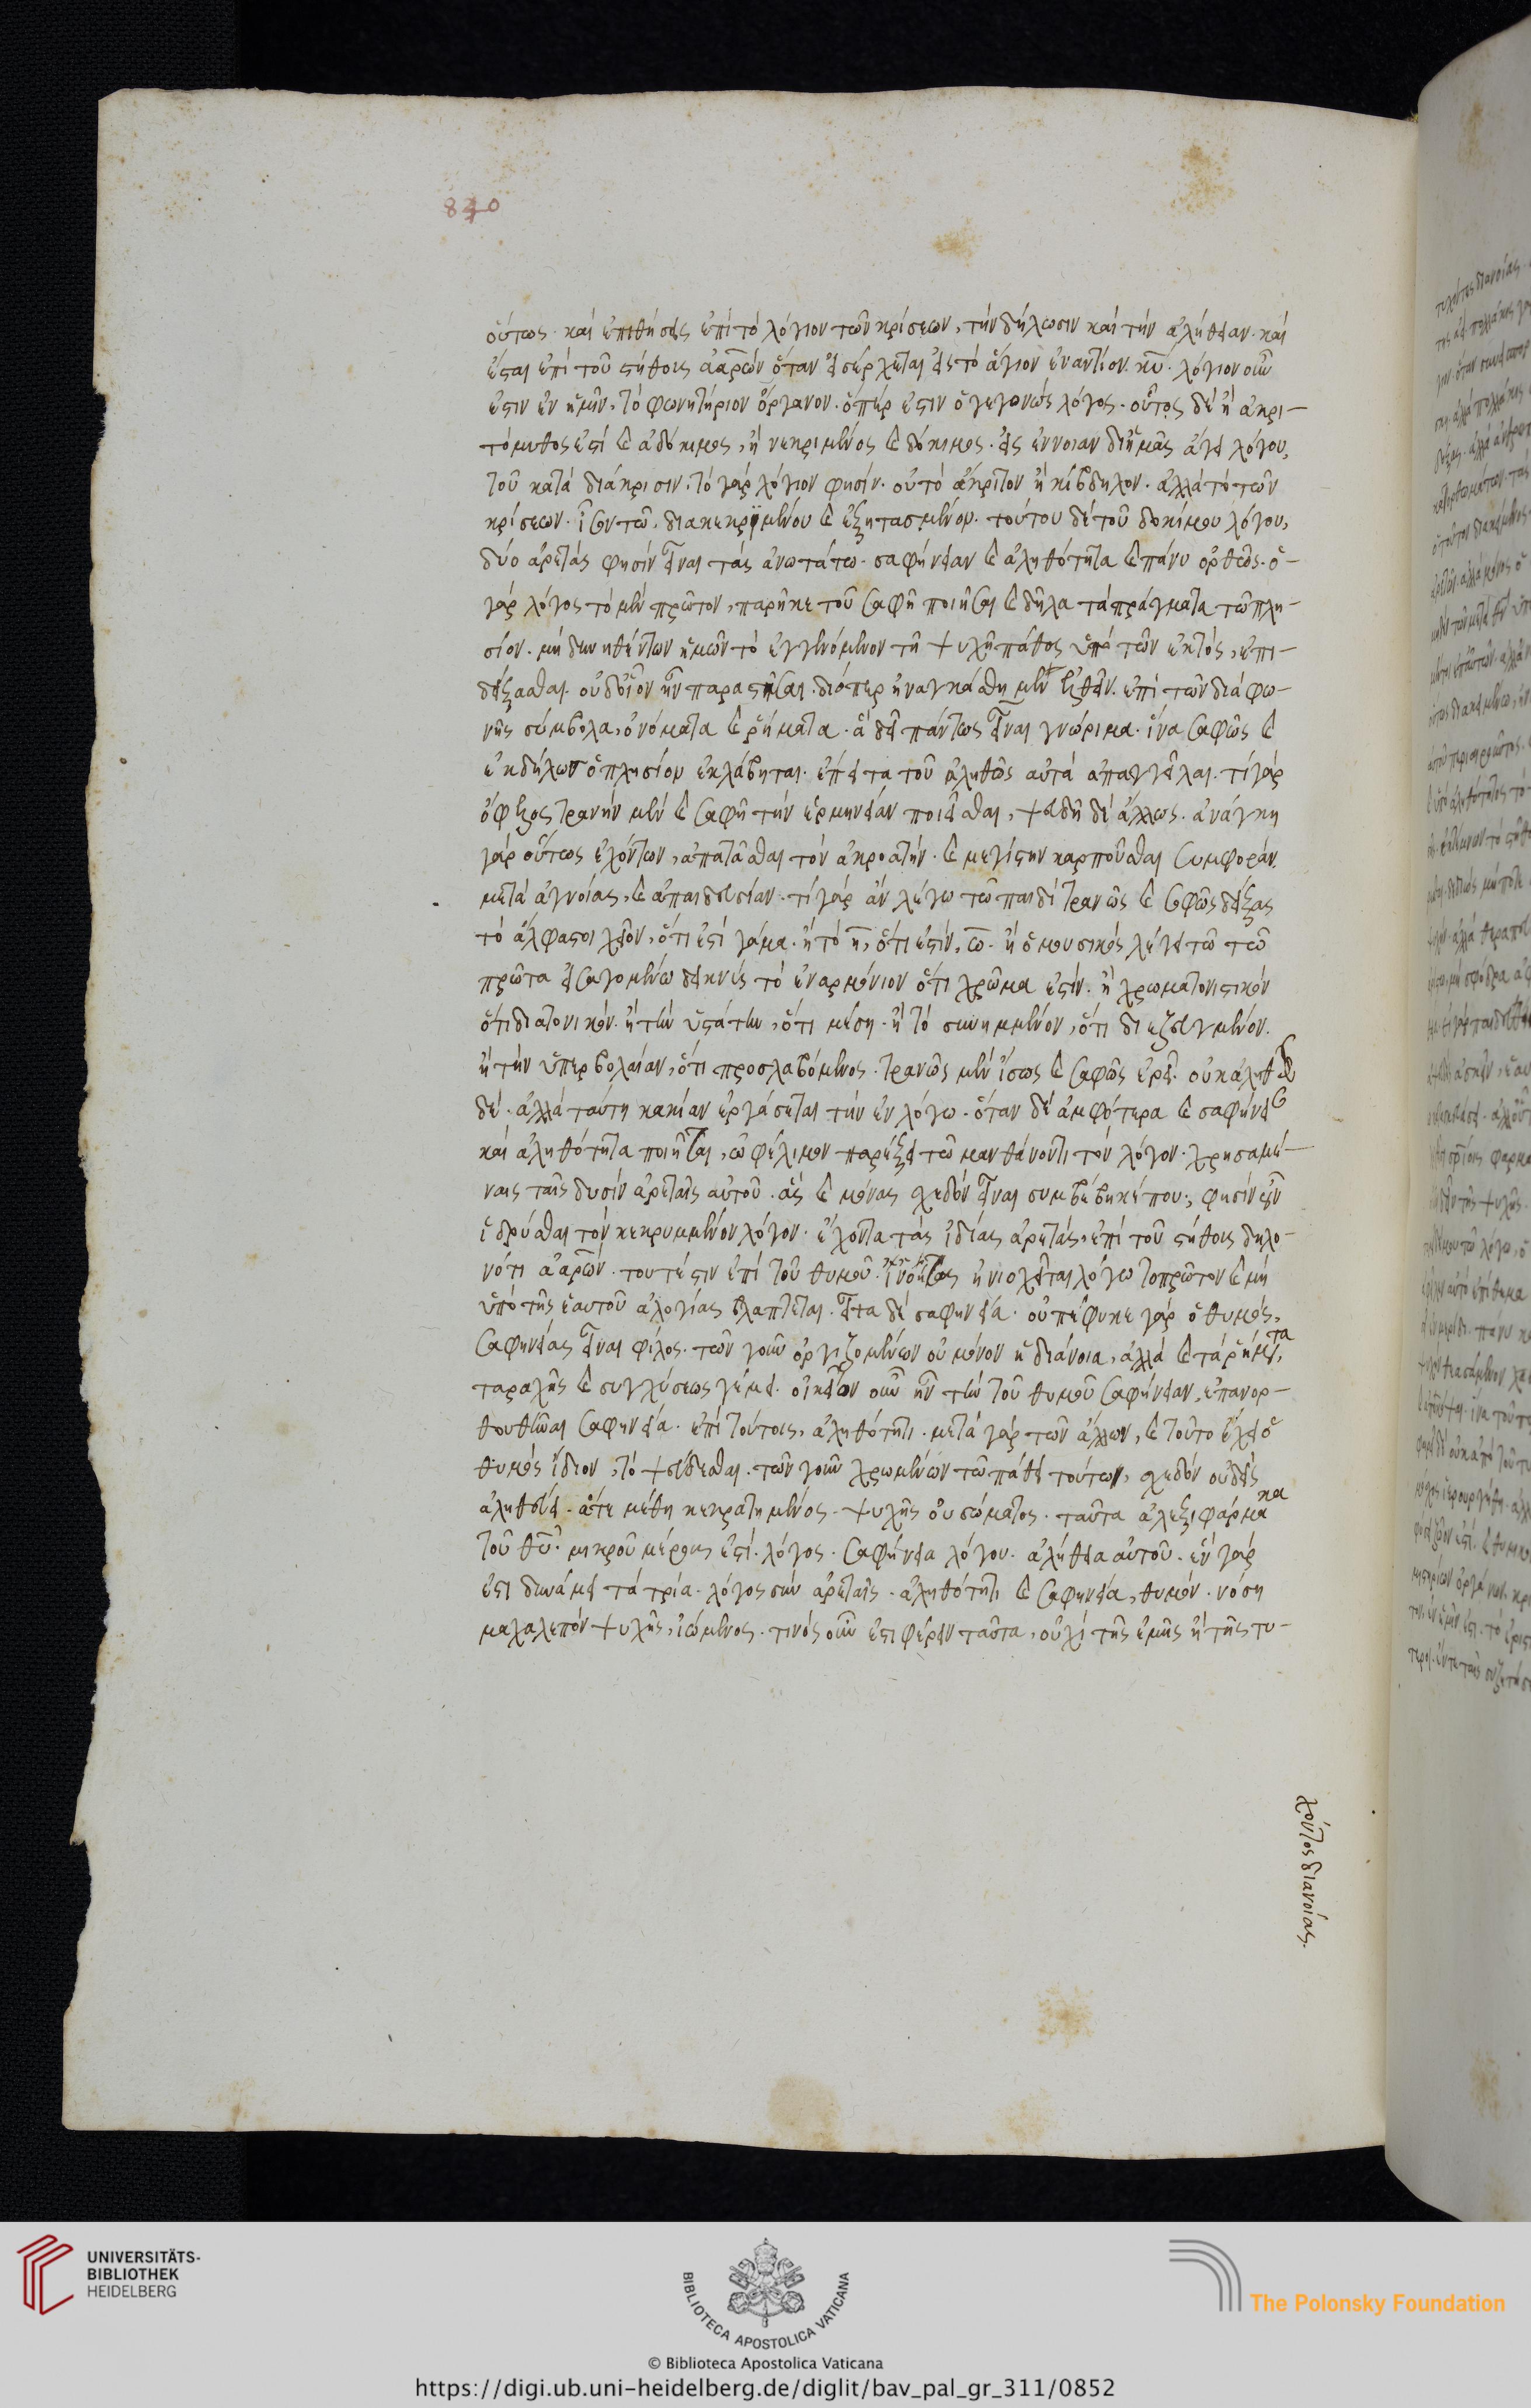 840
οὕτως· καὶ ἐπιθήσεις ἐπὶ τὸ λόγιον τῶν κρίσεων, τὴν δήλωσιν καὶ τὴν ἀλήθειαν· καὶ
ἔσται ἐπὶ τοῦ στήθους ἀαρὼν ὅταν εἰσέρχεται εἰς τὸ ἅγιον ἐναντίον κυ· λόγιον οὖν
ἐστιν ἐν ἡμῖν, τὸ φωνητήριον ὄργανον· ὅπερ ἐστὶν ὁ γεγονὼς λόγος· οὗτος δὲ ἢ ἀκρι-
τόμυθος ἐστὶ καὶ ἀδόκιμος, ἢ κεκριμένος καὶ δόκιμος· εἰς ἔννοιαν δι ἡμᾶς ἄγει λόγου,
τοῦ κατὰ διάκρισιν· τὸ γὰρ λόγιον φησὶν· οὐ τὸ ἄκριτον ἢ κίβδηλον· ἀλλὰ τὸ τῶν
κρίσεων· ἴσον τῶ, διακεκριμένου καὶ ἐξητασμένου· τούτου δὲ τοῦ δοκίμου λόγου,
δύο ἀρετάς φησὶν εἶναι τὰς ἀνωτάτω· σαφήνειαν καὶ ἀληθότητα καὶ πάνυ ὀρθῶς· ὁ-
γὰρ λόγος τὸ μὲν πρῶτον, παρῆκε τοῦ σαφῆ ποιῆσαι καὶ δῆλα τὰ πράγματα τῶ πλη-
σίον· μὴ δυνηθέντων ἡμῶν τὸ ἐγγενόμενον τῇ ψυχῇ πάθος ὑπὸ τῶν ἐκτός, ἐπι-
δείξασθαι· οὐδ οἷον ἦν παραστῆσαι· διόπερ ἠναγκάσθημεν ἐλθεῖν· ἐπὶ τῶν διὰ φω-
νῆς σύμβολα, ὀνόματα καὶ ῥήματα· ἃ δεῖ πάντως εἶναι γνώριμα· ἵνα σαφῶς καὶ
ἐκδήλως ὁ πλησίον ἐκλάβηται· ἔπειτα τοῦ ἀληθῶς αὐτὰ ἀπαγγεῖλαι· τί γὰρ
ὄφελος τρανὴν μὲν καὶ σαφῆ τὴν ἑρμηνείαν ποιεῖσθαι, ψευδῆ δὲ ἄλλως· ἀνάγκη
γὰρ οὕτως ἐχόντων, ἀπατᾶσθαι τὸν ἀκροατήν· καὶ μεγίστην καρποῦσθαι συμφορὰν
μετὰ ἀγνοίας, καὶ ἀπαιδευσίαν· τί γὰρ ἂν λέγω τῶ παιδὶ τρανῶς καὶ σαφῶς δείξας
τὸ ἄλφα στοιχεῖον, ὅτι ἐστὶ γάμα· ἢ τὸ η, ὅτι ἐστὶν, ω· ἢ ὁ μουσικὸς λέγει τῶ τῶ
πρῶτα εἰσαγομένω δεικνὺς τὸ ἐναρμόνιον ὅτι χρῶμα ἐστίν· ἢ χρωματονιστικὸν
ὅτι διατονικόν· ἢ τὴν ὑστάτην, ὅτι μέση· ἢ τὸ συνημμένον, ὅτι διεζευγμένον·
ἢ τὴν ὑπερβολαίαν, ὅτι προσλαβόμενος· τρανῶς μὲν ἴσως καὶ σαφῶς ἐρεῖ· οὐκ ἀληθῶς
δέ· ἀλλὰ ταύτῃ κακίαν ἐργάσεται τὴν ἐν λόγω· ὅταν δὲ ἀμφότερα καὶ σαφήνει
καὶ ἀληθότητα ποιῆται, ὠφέλιμον παρέξει τῶ μανθάνοντι τὸν λόγον· χρησαμέ-
ναις ταῖς δυσὶν ἀρεταῖς αὐτοῦ· ἃς καὶ μόνας σχεδὸν εἶναι συμβέβηκέ που·, φησὶν οὖν
ἱδρύσθαι τὸν κεκρυμμένον λόγον· ἔχοντα τὰς ἰδίας ἀρετάς, ἐπὶ τοῦ στήθους δηλο-
νότι ἀαρών· τουτέστιν ἐπὶ τοῦ θυμοῦ· ἡνιοχεῖται λόγω τοπρῶτον καὶ μὴ
ὑπὸ τῆς ἑαυτοῦ ἀλογίας βλάπτεται· εἶτα δὲ σαφηνεία· οὐ πέφυκε γὰρ ὁ θυμός,
σαφηνείας εἶναι φίλος· τῶν γοῦν ὀργιζομένων οὐ μόνον ἡ διάνοια, ἀλλὰ καὶ τὰ ῥήματα
ταραχῆς καὶ συγχύσεως γέμει· οἰκεῖον οὖν ἦν τὴν τοῦ θυμοῦ σαφήνειαν, ἐπανορ-
θωθῆναι σαφηνεία· ἐπὶ τούτοις, ἀληθότητι· μετὰ γὰρ τῶν ἄλλων, καὶ τοῦτο ἔχει ὁ
θυμὸς ἴδιον, τὸ ψεύδεσθαι· τῶν γοῦν χρωμένων τῶ πάθει τούτων, σχεδὸν οὐδεὶς
ἀληθεύει· ἅτε μέθῃ κεκρατημένος· ψυχῆς οὐ σώματος· ταῦτα ἀλεξιφάρμακα
τοῦ θυ· μικροῦ μέρους ἐστί· λόγος· σαφήνεια λόγου· ἀλήθεια αὐτοῦ· ἓν γὰρ
ἐστι δυνάμει τὰ τρία· λόγος σὺν ἀρεταῖς· ἀληθότητι καὶ σαφηνεία, θυμόν· νόση
μαχαλεπὸν ψυχῆς, ἰώμενος· τινὸς οὖν ἐστι φέρειν ταῦτα, οὐχὶ τῆς ἐμῆς ἢ τῆς τυ-
χούσης διανοίας.
UNIVERSITÄTS-
BIBLIOTHEK
HEIDELBERG
BIBLIOTECA APOSTOLICA VATICANA
The Polonsky Foundation
© Biblioteca Apostolica Vaticana
https://digi.ub.uni-heidelberg.de/diglit/bav_pal_gr_311/0852